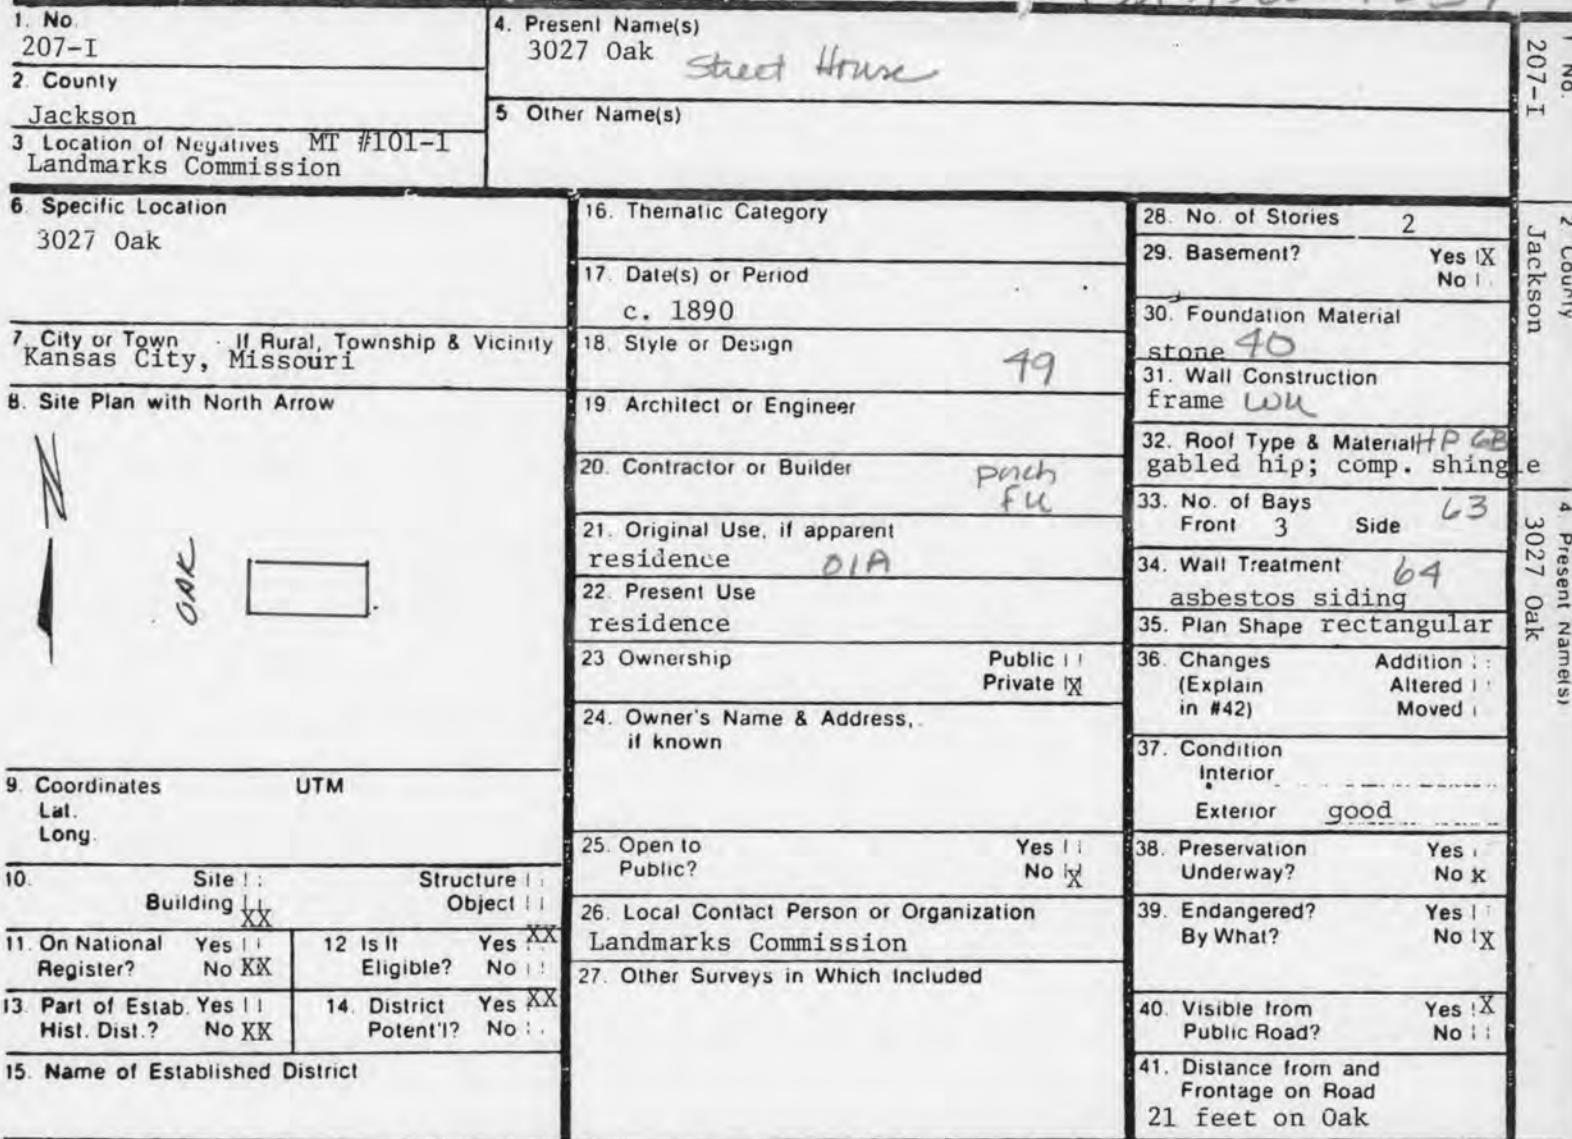 1. No.
207-I
2. County
Jackson
3 Location of Negatives MT #101-1
Landmarks Commission
4. Present Name(s)
3027 Oak Street House
5 Other Name(s)
6. Specific Location
3027 Oak
7. City or Town If Rural, Township & Vicinity
Kansas City, Missouri
8. Site Plan with North Arrow
N
OAK
9. Coordinates UTM
Lat.
Long.
10. Site Structure
Building XX Object
11. On National Yes
Register? No XX
12 Is It Yes XX
Eligible? No
13. Part of Estab. Yes
Hist. Dist.? No XX
14. District Yes XX
Potent'l? No
15. Name of Established District
16. Thematic Category
17. Date(s) or Period
c. 1890
18. Style or Design
49
19. Architect or Engineer
20. Contractor or Builder
porch
FU
21. Original Use, if apparent
residence 01A
22. Present Use
residence
23 Ownership Public
Private X
24. Owner's Name & Address,
if known
25. Open to Yes
Public? No X
26. Local Contact Person or Organization
Landmarks Commission
27. Other Surveys in Which Included
28. No. of Stories 2
29. Basement? Yes X
No
30. Foundation Material
stone 40
31. Wall Construction
frame WU
32. Roof Type & Material HP GB
gabled hip; comp. shingle
33. No. of Bays 63
Front 3 Side
34. Wall Treatment 64
asbestos siding
35. Plan Shape rectangular
36. Changes Addition
(Explain Altered
in #42) Moved
37. Condition
Interior
Exterior good
38. Preservation Yes
Underway? No X
39. Endangered? Yes
By What? No X
40. Visible from Yes X
Public Road? No
41. Distance from and
Frontage on Road
21 feet on Oak
1 No.
207-I
2 County
Jackson
4. Present Name(s)
3027 Oak